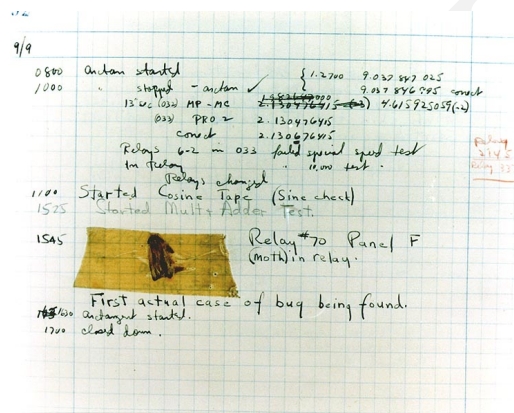 9/9
0800 Antan started { 1.2700 9.037 847 025
1000 " stopped - antan ✓ 9.037 846 995 conect
13"uc (032) MP-MC 2.130476415 (-3) 4.615925059(-2)
(033) PRO 2 2.130476415
conect 2.130676415
Relays 6-2 in 033 failed special speed test
In Relay " 10,000 test .
Relays changed
1100 Started Cosine Tape (Sine check)
1525 Started Mult+Adder Test.
1545 Relay #70 Panel F
(Moth) in relay.
First actual case of bug being found.
1630 antangent started.
1700 closed down.
Relay